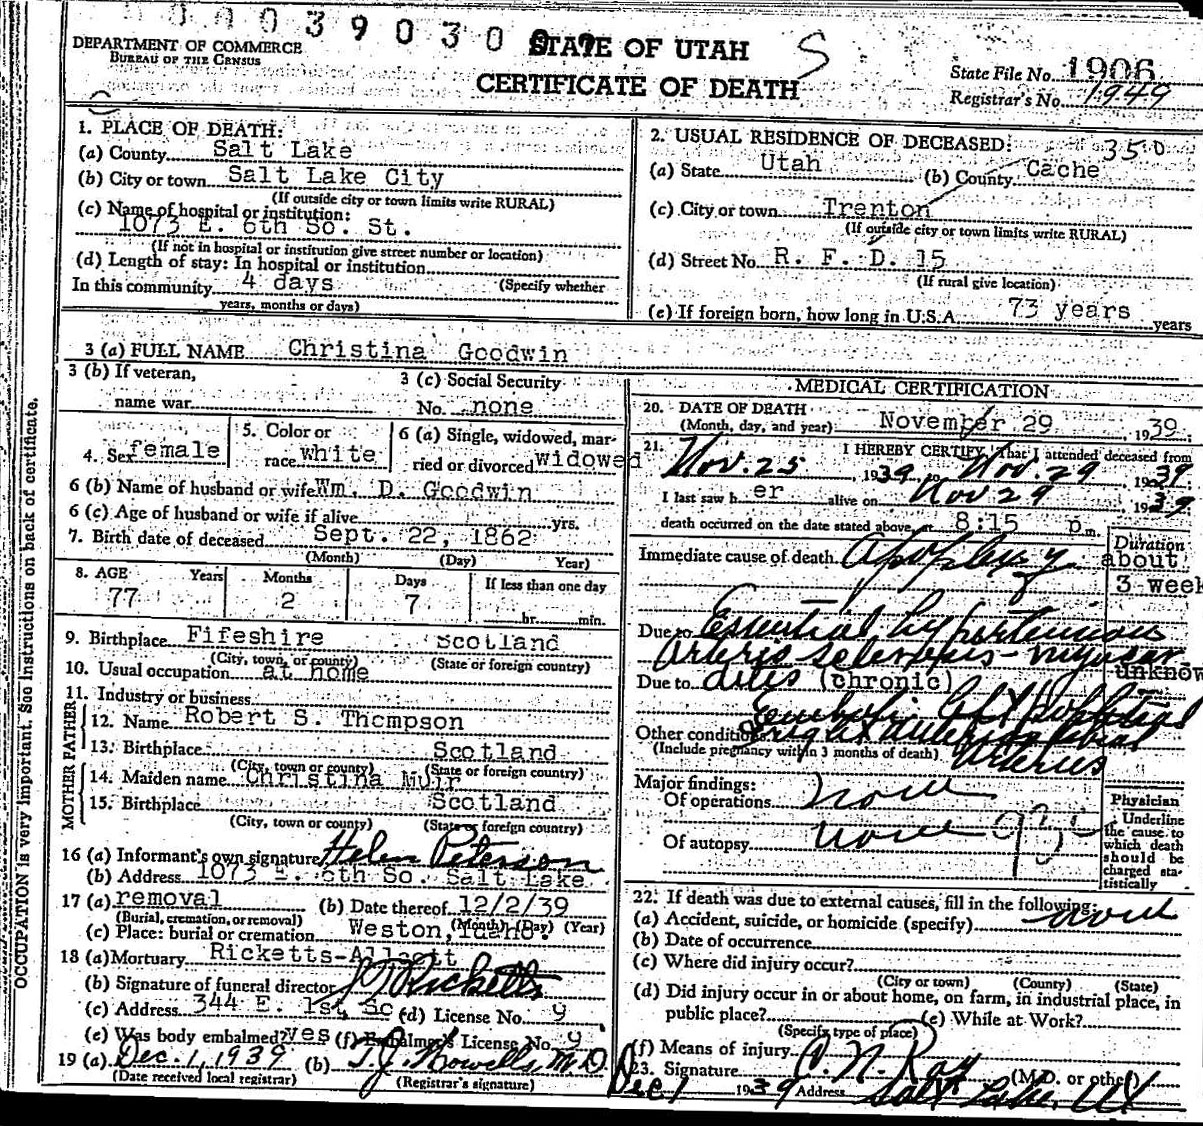 0 0 0 3 9 0 3 0
DEPARTMENT OF COMMERCE
BUREAU OF THE CENSUS
STATE OF UTAH
CERTIFICATE OF DEATH
S
State File No. 1906
Registrar's No. 1949
1. PLACE OF DEATH:
(a) County Salt Lake
(b) City or town Salt Lake City
(If outside city or town limits write RURAL)
(c) Name of hospital or institution:
1073 E. 6th So. St.
(If not in hospital or institution give street number or location)
(d) Length of stay: In hospital or institution
In this community 4 days (Specify whether
years, months or days)
2. USUAL RESIDENCE OF DECEASED: 350
(a) State Utah (b) County Cache
(c) City or town Trenton
(If outside city or town limits write RURAL)
(d) Street No. R. F. D. 15
(If rural give location)
(e) If foreign born, how long in U.S.A. 73 years years
3 (a) FULL NAME Christina Goodwin
3 (b) If veteran,
name war
3 (c) Social Security
No. none
4. Sex female
5. Color or
race white
6 (a) Single, widowed, mar-
ried or divorced widowed
6 (b) Name of husband or wife Wm. D. Goodwin
6 (c) Age of husband or wife if alive yrs.
7. Birth date of deceased Sept. 22, 1862
(Month) (Day) Year)
8. AGE Years Months Days If less than one day
77 2 7 hr. min.
9. Birthplace Fifeshire Scotland
(City, town, or county) (State or foreign country)
10. Usual occupation at home
11. Industry or business
FATHER
12. Name Robert S. Thompson
13. Birthplace Scotland
(City, town or county) (State or foreign country)
MOTHER
14. Maiden name Christina Muir
15. Birthplace Scotland
(City, town or county) (State or foreign country)
16 (a) Informant's own signature Helen Peterson
(b) Address 1073 E. 6th So. Salt Lake
17 (a) removal (b) Date thereof 12/2/39
(Burial, cremation, or removal) (Month) (Day) (Year)
(c) Place: burial or cremation Weston, Idaho.
18 (a) Mortuary Ricketts-Allcott
(b) Signature of funeral director Ricketts
(c) Address 344 E. 1st So (d) License No. 9
(e) Was body embalmed? yes (f) Embalmer's License No. 9
19 (a) Dec. 1, 1939 (b) T. J. Howells, M.D.
(Date received local registrar) (Registrar's signature)
MEDICAL CERTIFICATION
20. DATE OF DEATH
(Month, day, and year) November 29, 1939
21. I HEREBY CERTIFY, That I attended deceased from
Nov. 25, 1939 to Nov 29, 1939
I last saw her alive on Nov 29, 1939
death occurred on the date stated above, at 8:15 p m.
Immediate cause of death Apoplexy
Duration
about
3 week
Due to Essential hypertension
arterio sclerosis - myocar
Due to ditis (chronic)
unknow
Other conditions
(Include pregnancy within 3 months of death)
Major findings:
Of operations none
Of autopsy none
Physician
Underline
the cause to
which death
should be
charged sta-
tistically
22. If death was due to external causes, fill in the following:
(a) Accident, suicide, or homicide (specify) none
(b) Date of occurrence
(c) Where did injury occur?
(City or town) (County) (State)
(d) Did injury occur in or about home, on farm, in industrial place, in
public place? (e) While at Work?
(Specify type of place)
(f) Means of injury
23. Signature (M.D. or other)
Dec 1 1939 Address Salt Lake, Ut
OCCUPATION is very important. See instructions on back of certificate.